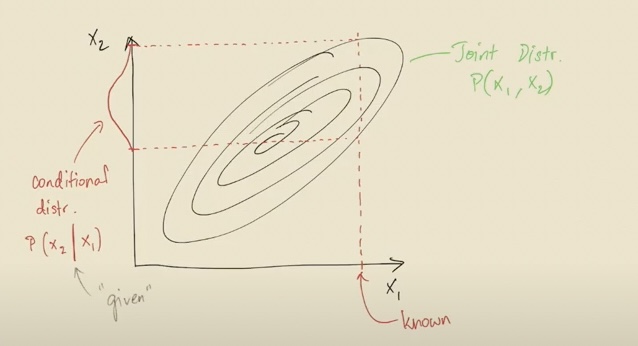 x₂
Joint Distr.
P(x₁, x₂)
conditional
distr.
P(x₂|x₁)
"given"
x₁
known